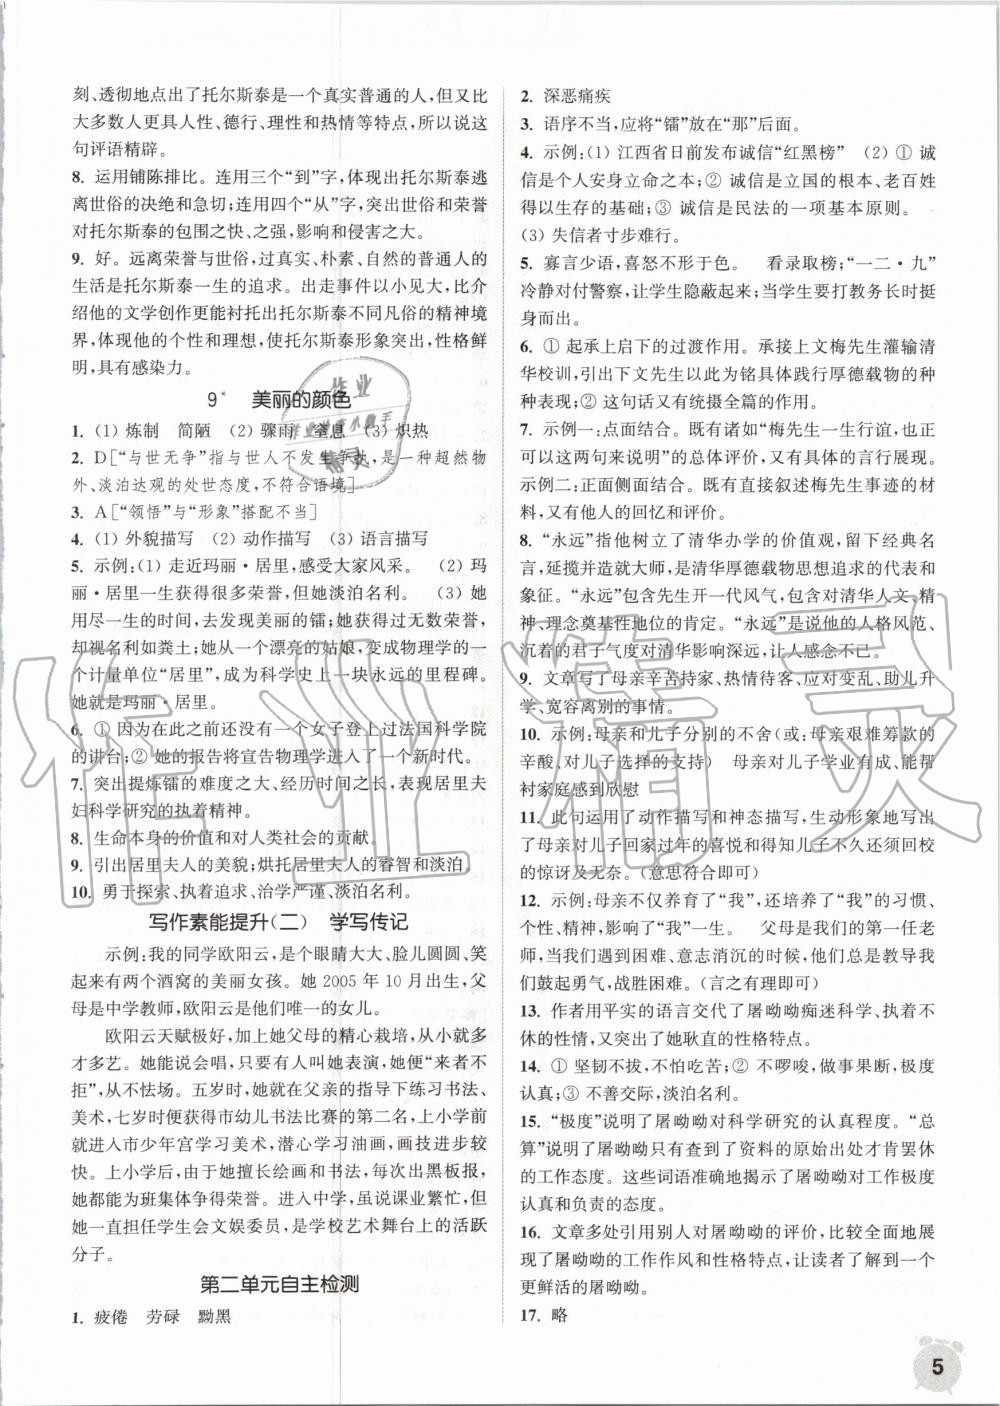 刻、透彻地点出了托尔斯泰是一个真实普通的人,但又比
大多数人更具人性、德行、理性和热情等特点,所以说这
句评语精辟。
8. 运用铺陈排比。连用三个“到”字,体现出托尔斯泰逃
离世俗的决绝和急切;连用四个“从”字,突出世俗和荣誉
对托尔斯泰的包围之快、之强,影响和侵害之大。
9. 好。远离荣誉与世俗,过真实、朴素、接近普通人的
生活是托尔斯泰一生的追求。出走事件以小见大,比介
绍他的文学创作更能衬托出托尔斯泰不同凡俗的精神境
界,体现他的个性和理想,使托尔斯泰形象突出,性格鲜
明,具有感染力。
9* 美丽的颜色
1. (1) 炼制 简陋 (2) 骤雨 窒息 (3) 炽热
2. D[“与世无争”指与世人不发生争执,是一种超然物
外、淡泊达观的处世态度,不符合语境]
3. A[“领悟”与“形象”搭配不当]
4. (1) 外貌描写 (2) 动作描写 (3) 语言描写
5. 示例:(1) 走近玛丽·居里,感受大家风采。 (2) 玛
丽·居里一生获得很多荣誉,但她淡泊名利。 (3) 她
用尽一生的时间,去发现美丽的镭,在获得无数荣誉后,
却视名利如粪土;她从一个漂亮的姑娘,变成物理学的一
个计量单位“居里”,成为科学史上一块永远的里程碑。
她就是玛丽·居里。
6. ① 因为在此之前还没有一个女子登上过法国科学院
的讲台;② 她的报告将宣告物理学上一个新时代。
7. 突出提炼镭的难度之大、经历时间之长,表现居里夫
妇科学研究的执着精神。
8. 生命本身的价值和对人类社会的贡献。
9. 引出居里夫人的美貌;烘托居里夫人的睿智和淡泊。
10. 勇于探索、执着追求、治学严谨、淡泊名利。
写作素能提升(二) 学写传记
示例:我的同学欧阳云,是个眼睛大大、脸儿圆圆、笑
起来有两个酒窝的美丽女孩。她 2005 年 10 月出生,父
母是中学教师,欧阳云是他们唯一的女儿。
欧阳云天赋极好,加上她父母的精心栽培,从小就多
才多艺。她能说会唱,只要有人叫她表演,她便“来者不
拒”,从不怯场。五岁时,她就在父亲的指导下练习书法、
美术,七岁时便获得市幼儿书法比赛的第二名,上小学三年
就进入市少年宫学习美术,潜心学习油画,画技进步较
快。上小学后,由于她擅长绘画和书法,每次出黑板报,
她都能为班集体争得荣誉。进入中学,虽说课业繁忙,但
她一直担任学生会文娱委员,是学校艺术舞台上的活跃
分子。
第二单元自主检测
1. 疲倦 劳碌 黝黑
2. 深恶痛疾
3. 语序不当,应将“镭”放在“那”后面。
4. 示例:(1) 江西省日前发布诚信“红黑榜” (2) ① 诚
信是个人安身立命之本;② 诚信是立国的根本、老百姓
得以生存的基础;③ 诚信是民法的一项基本原则。
(3) 失信者寸步难行。
5. 寡言少语,喜怒不形于色。 看录取榜;“一二·九”
冷静对付警察,让学生隐蔽起来;当学生要打教务长时挺
身而出。
6. ① 起承上启下的过渡作用。承接上文梅先生灌输清
华校训,引起下文先生以此为铭具体践行厚德载物的种
种表现;② 这句话又有统摄全篇的作用。
7. 示例一:点面结合。既有诸如“梅先生一生行谊,也正
可以这两句来说明”的总体评价,又有具体的言行展现。
示例二:正面侧面结合。既有直接叙述梅先生事迹的材
料,又有他人的回忆和评价。
8. “永远”指他奠定了清华办学的价值观,留下经典名
言,延揽并造就大师,是清华厚德载物思想追求的代表和
象征。“永远”包含先生开一代风气,包含对清华人文、精
神、理念奠基性地位的肯定。“永远”是说他的人格风范、
沉着的君子气度对清华影响深远,让人感念不已。
9. 文章写了母亲辛苦持家、热情待客、应对变乱、助儿升
学、宽容离别的事情。
10. 示例:母亲和儿子分别的不舍(或:母亲艰难筹款的
辛酸、对儿子选择的支持) 母亲对儿子学业有成、能帮
衬家庭感到欣慰
11. 此句运用了动作描写和神态描写,生动形象地写出
了母亲对儿子回家过年的喜悦和得知儿子不久还须回校
的惊讶及无奈。(意思符合即可)
12. 示例:母亲不仅养育了“我”,还培养了“我”的习惯、
个性,影响了“我”一生。 父母是我们的第一任老师,
当我们遇到困难、意志消沉的时候,他们总是教导我们
勇敢,战胜困难。(言之有理即可)
13. 作者用平实的语言交代了屠呦呦痴迷科学、执着不
休的性情,又突出了她耿直的性格特点。
14. ① 坚韧不拔,不怕吃苦;② 不啰唆,做事果断,极度
认真;③ 不善交际,淡泊名利。
15. “极度”说明了屠呦呦对科学研究的认真程度。“总
算”说明了屠呦呦只有查到了资料的原始出处才肯罢休
的工作态度。这些词语准确地揭示了屠呦呦对工作极度
认真和负责的态度。
16. 文章多处引用别人对屠呦呦的评价,比较全面展
现了屠呦呦的工作作风和性格特点,让读者了解到一个
更鲜活的屠呦呦。
17. 略
5
作业精灵